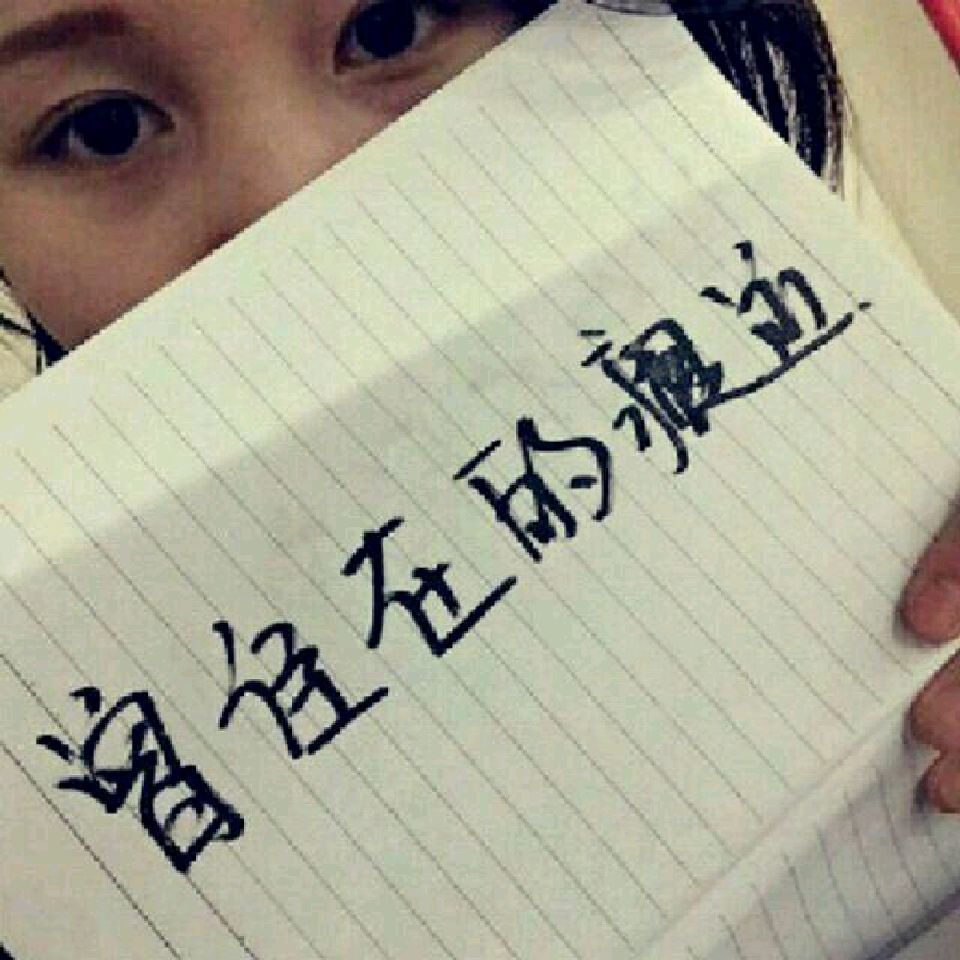 曾经在的痕迹